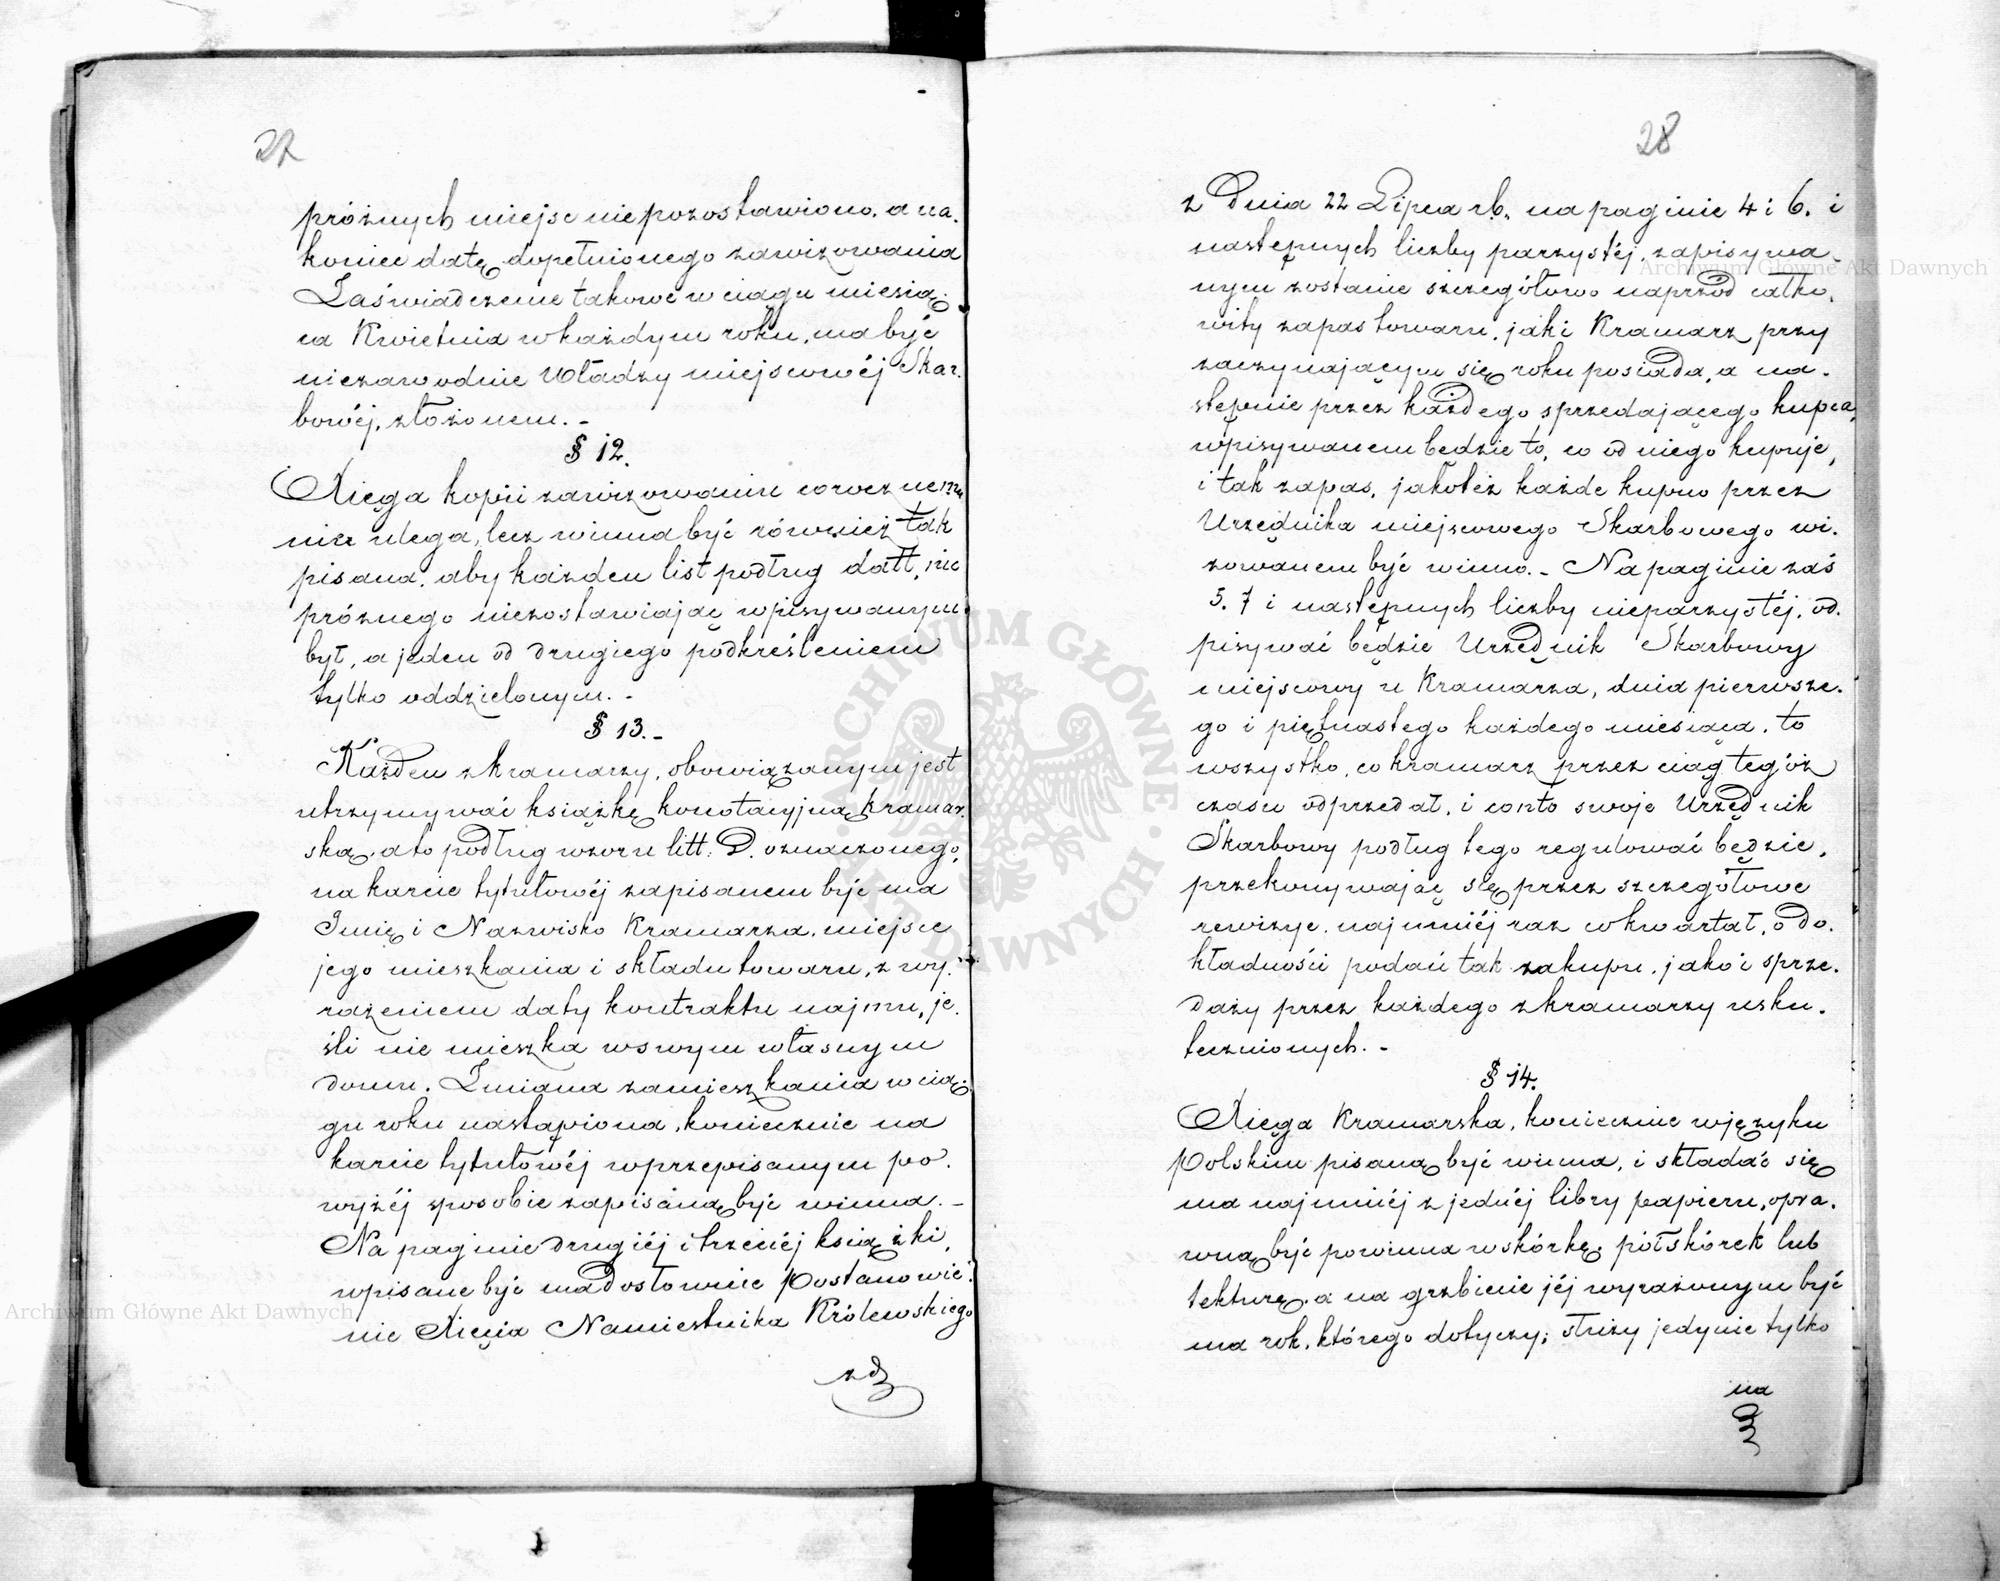 27
próżnych miejsc nie pozostawiono. a na.
koniec datę dopełnionego zawizowania
Zaświadczenie takowe w ciągu miesią.
ca Kwietnia w każdym roku, ma być
niezawodnie Władzy miejscowéj Skar.
bowéj, złożonem. -
§ 12.
Xięga kopii zawizowaniu corocznemu
nie ulega, lecz winna być również tak
pisana, aby każden list podług datt, nic
próżnego niezostawiając wpisywanym
był, a jeden od drugiego podkreśleniem
tylko oddzielonym. -
§ 13. -
Każden z kramarzy, obowiązanym jest
utrzymywać książkę konotacyjną kramar.
ską, a to podług wzoru litt: D. oznaczonego,
na karcie tytułowéj zapisanem być ma
Imię i Nazwisko Kramarza, miejsce
jego mieszkania i składu towaru, z wy.
rażeniem daty kontraktu najmu, je.
śli nie mieszka w swym własnym
domu. Zmiana zamieszkania w cią.
gu roku nastąpiona, koniecznie na
karcie tytułowéj w przepisanym po.
wyżéj sposobie zapisaną być winna. -
Na paginie drugiéj i trzeciéj książki,
wpisane być ma dosłownie Postanowie.
nie Xięcia Namiestnika Królewskiego
z d
28
z Dnia 22 Lipca r.b. na paginie 4 i 6. i
następnych liczby parzystéj, zapisywa.
nym zostanie szczegółowo naprzód całko.
wity zapas towaru, jaki Kramarz przy
zaczynającym się roku posiada, a na.
stępnie przez każdego sprzedającego kupca,
wpisywanem będzie to, co od niego kupuje,
i tak zapas, jakotéż każde kupno przez
Urzędnika miejscowego Skarbowego wi.
zowanem być winno. - Na paginie zaś
5. 7 i następnych liczby nieparzystéj, od.
pisywać będzie Urzędnik Skarbowy
miejscowy u Kramarza, dnia pierwsze.
go i piętnastego każdego miesiąca, to
wszystko, co kramarz przez ciąg tegóż
czasu odprzedał, i conto swoje Urzędnik
Skarbowy podług tego regulować będzie,
przekonywając się przez szczegółowe
rewizye, najmniéj raz w kwartał, o do.
kładności podań tak zakupu, jako i sprze.
daży przez każdego z kramarzy usku.
tecznionych. -
§ 14.
Xięga Kramarska, koniecznie w języku
Polskim pisaną być winna, i składać się
ma najmniéj z jednéj libry papieru, opra.
wną być powinna w skórkę, półskórek lub
tekturę, a na grzbiecie jéj wyrażonym być
ma rok, którego dotyczy; służy jedynie tylko
na
Archiwum Główne Akt Dawnych
Archiwum Główne Akt Dawnych
ARCHIWUM GŁÓWNE AKT DAWNYCH